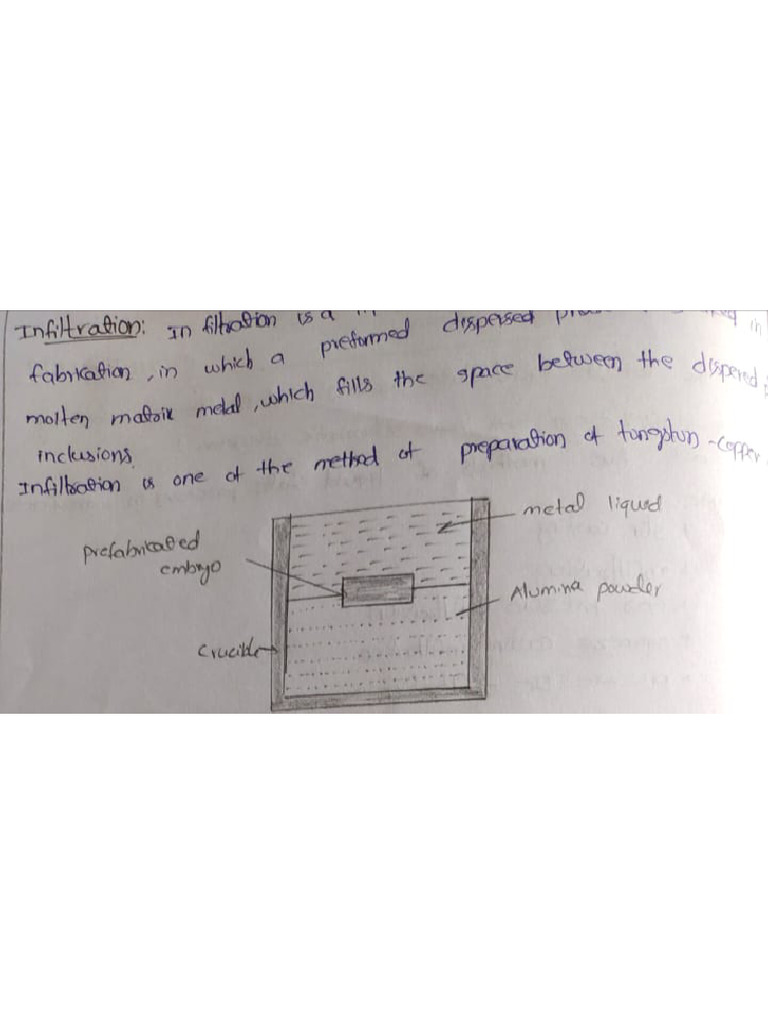 Infiltration: In filtration is a
fabrication, in which a preformed dispersed in
molten matrix metal, which fills the space between the dispersed
inclusions.
Infiltration is one of the method of preparation of tungstun-copper
metal liquid
prefabricated
embryo
Alumina powder
crucible